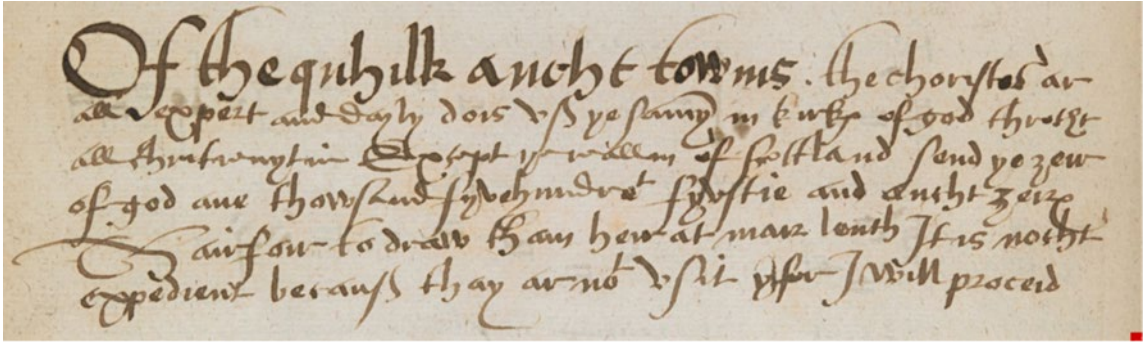 Of the quhilk aucht townis. the choristeris ar
all expert and dayly dois vß ye samy in kirkis of god throcht
all christreaytie Except ye reallm of scottland send ye zeir
of god ane thowsand fyvehundret fyvstie and aucht zeiris
Thairfoir to draw tham heir at mair lenth It is nocht
expedient becauß thay ar not vsit yrfor I will proceid